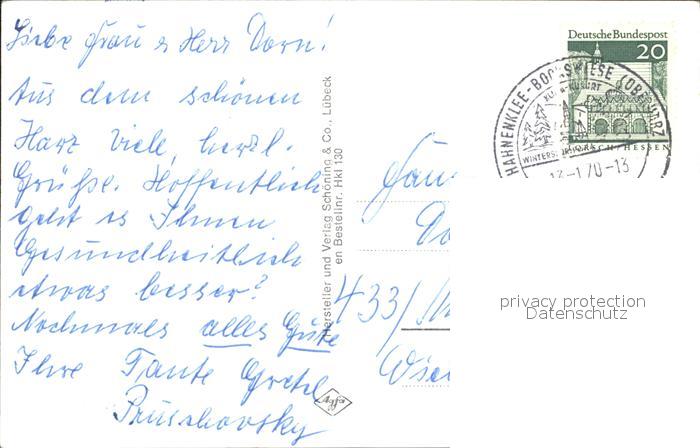 Liebe Frau & Herr Dorn!
Aus dem schönen
Harz viele herzl.
Grüße. Hoffentlich
geht es Ihnen
Gesundheitlich
etwas besser?
Nochmals alles Gute
Ihre Tante Gretel
Pruschovsky
Hersteller und Verlag Schöning & Co., Lübeck
en Bestellnr. Hkl 130
Agfa
Deutsche Bundespost
20
HAHNENKLEE-BOCKSWIESE (OBERHARZ
13-1.70-13
HESSEN
Do
433/
privacy protection
Datenschutz